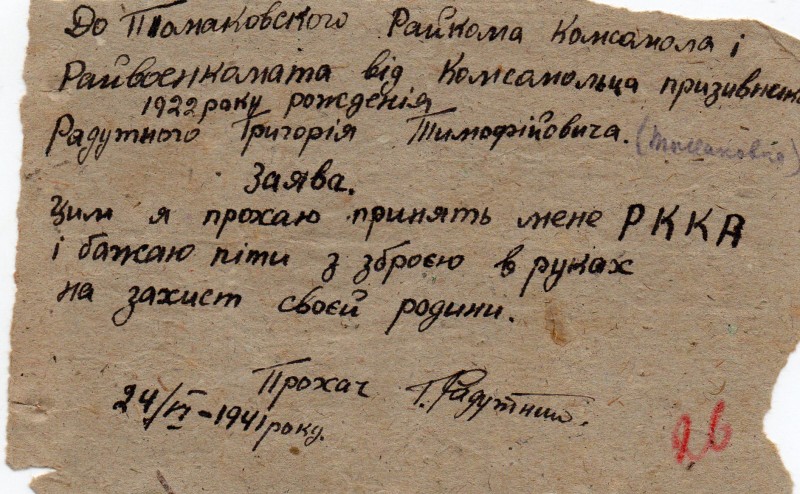 До Томаковского Райкома Комсамола і
Райвоенкамата від Комсамольца призивника
1922 року рожденія
Радутного Григорія Тимофійовича. (Томаковка)
Заява.
Цим я прохаю принять мене РККА
і бажаю піти з зброєю в руках
на захист своєй родини.
Прохач Г. Радутний.
24/VI-1941 року.
26